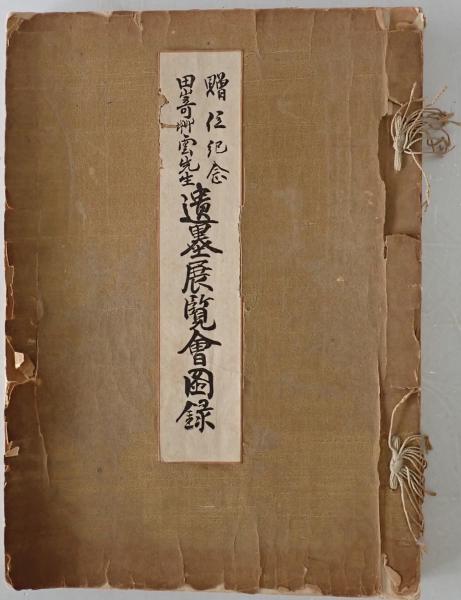 贈位紀念
田崎艸雲先生
遺墨展覧會図録